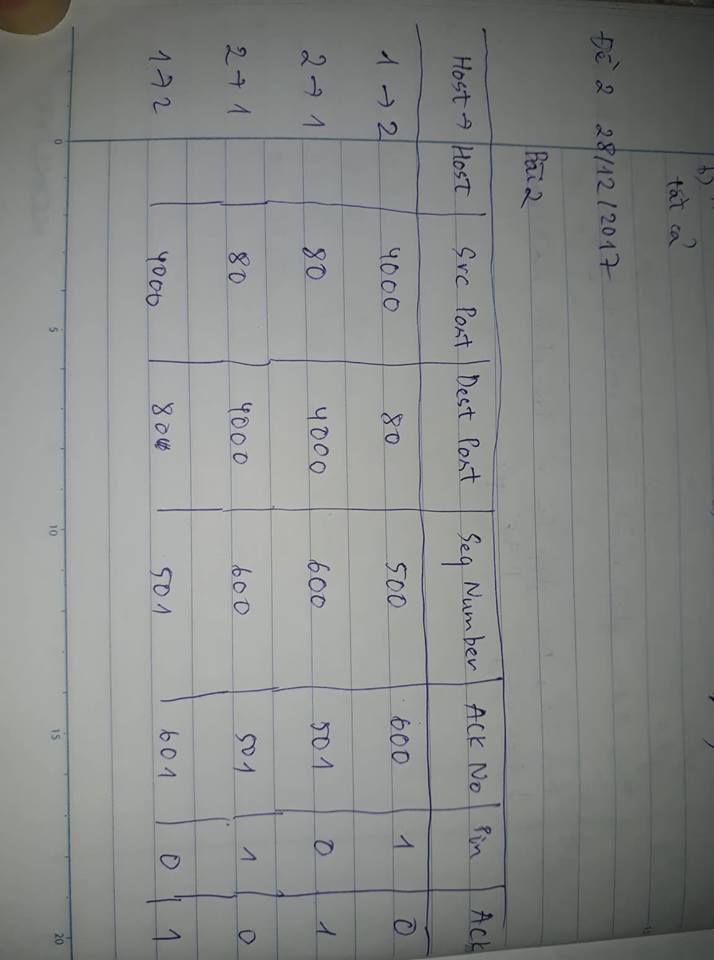 b)
tất cả
Đề 2 28/12/2017
Bài 2
Host → Host Src Port Dest Port Seq Number Ack No Fin Ack
1 → 2 4000 80 500 600 1 0
2 → 1 80 4000 600 501 0 1
2 → 1 80 4000 600 501 1 0
1 → 2 4000 80 501 601 0 1
0 5 10 15 20